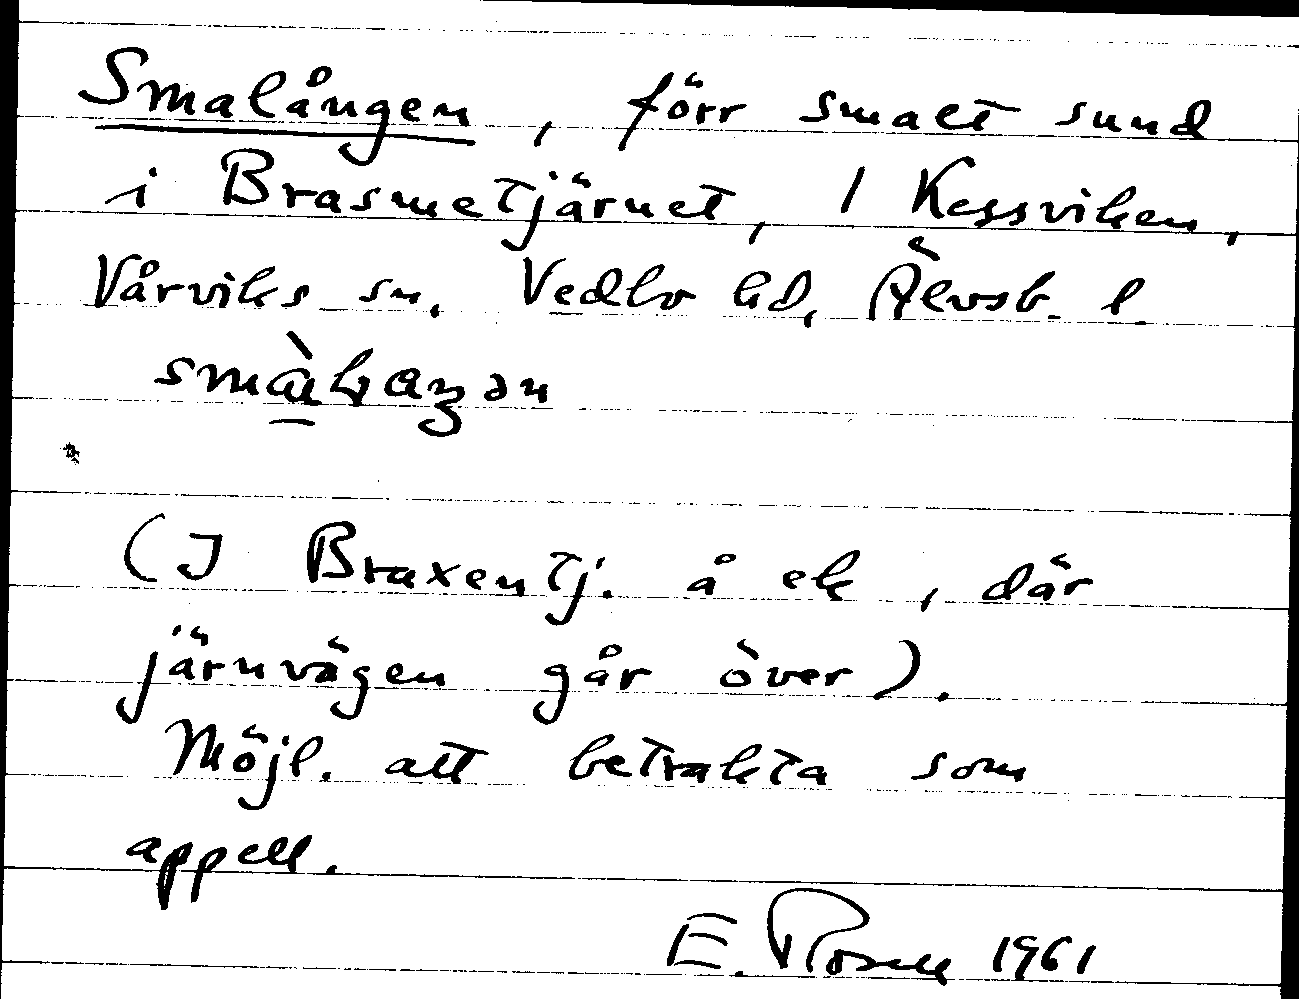 Smalången, förr smalt sund
i Brasmetjärnet, 1 Kessviken,
Vårviks sn. Vedbo hd, Älvsb. l.
(I Braxentj. å ek, där
järnvägen går över).
Möjl. att betrakta som
appell.
E. Rosell 1961